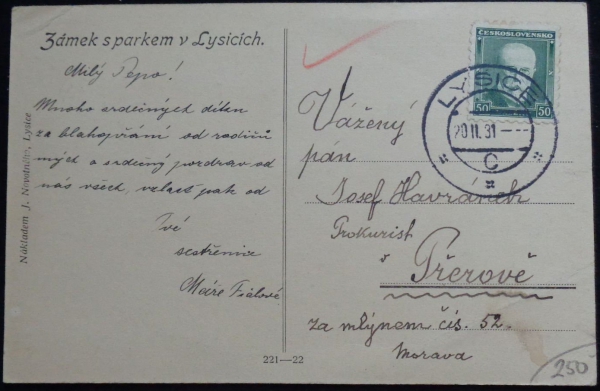 Zámek s parkem v Lysicích.
Milý Pepo!
Mnoho srdečných díků
za blahopřání od rodičů
mých a srdečný pozdrav od
nás všech, zvlášť pak od
Tvé
sestřenice
Máře Fialové
Nákladem J. Novotného, Lysice
221—22
ČESKOSLOVENSKO
50 50
LYSICE
20 II. 31
C
Vážený
pán
Josef Havránek
Prokurist
v Přerově
za mlýnem čís. 52.
Morava
250